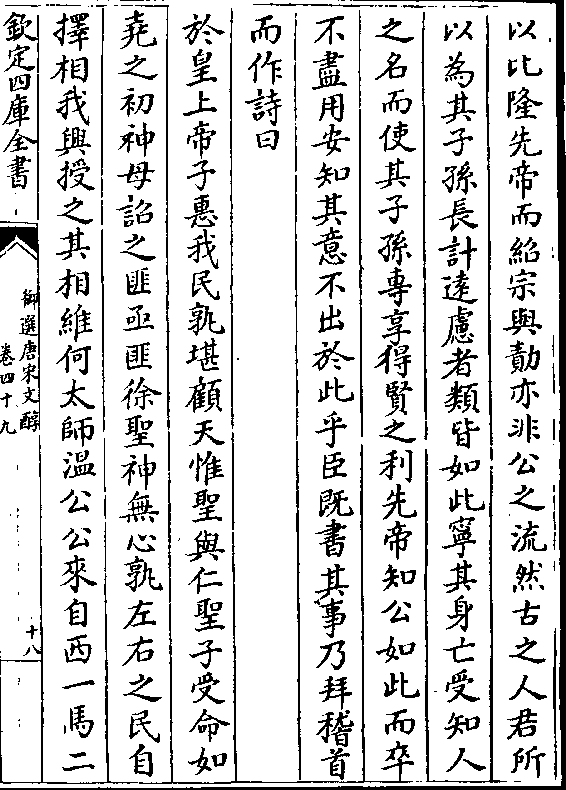 以比隆先帝而紹宗與勣亦非公之流然古之人君所
以為其子孫長計遠慮者類皆如此寧其身亡受知人
之名而使其子孫專享得賢之利先帝知公如此而卒
不盡用安知其意不出於此乎臣既書其事乃拜稽首
而作詩曰
於皇上帝子惠我民孰堪顧天惟聖與仁聖子受命如
堯之初神母詔之匪亟匪徐聖神無心孰左右之民自
擇相我興授之其相維何太師温公公來自西一馬二
欽定四庫全書
御選唐宋文醇
卷四十九
十八